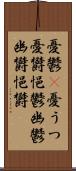 憂鬱 憂うつ
憂欝悒鬱幽鬱
幽欝悒欝